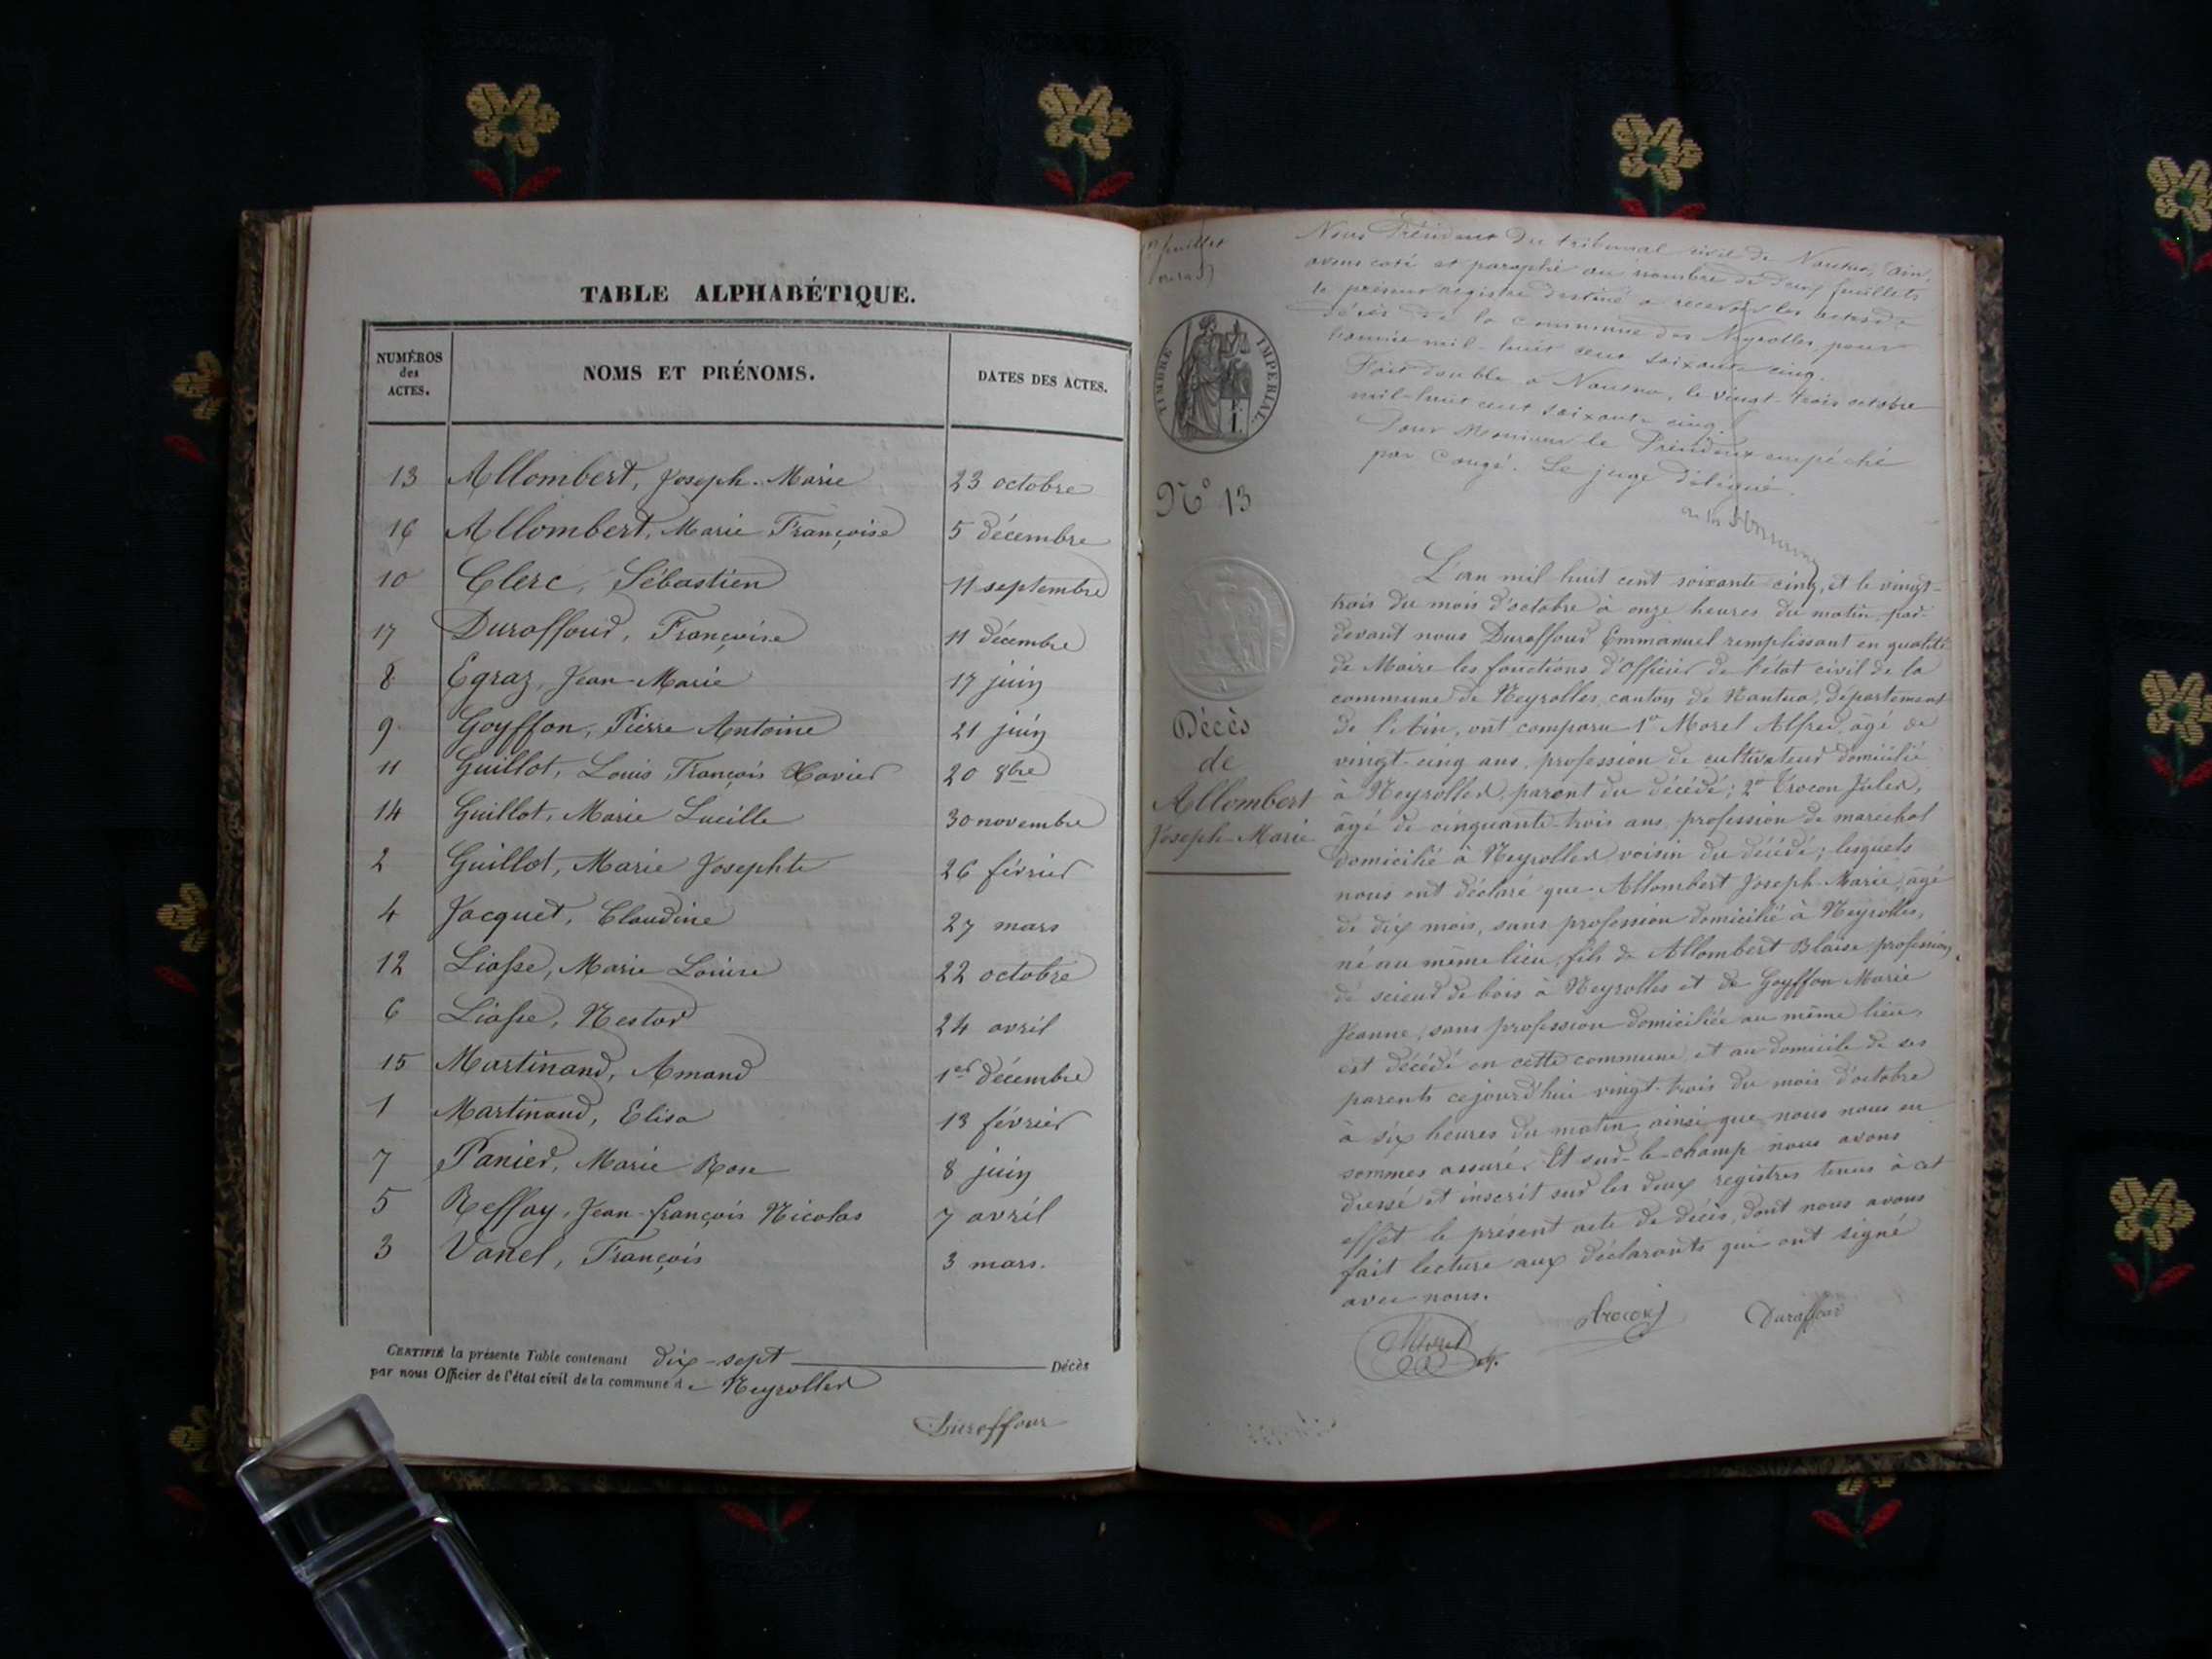 TABLE ALPHABÉTIQUE.
NUMÉROS des ACTES. NOMS ET PRÉNOMS. DATES DES ACTES.
13 Allombert, Joseph-Marie 23 octobre
16 Allombert, Marie Françoise 5 décembre
10 Clerc, Sébastien 11 septembre
17 Duraffour, Françoise 11 décembre
8 Egraz, Jean-Marie 17 juin
9 Goyffon, Pierre Antoine 21 juin
11 Guillot, Louis François Xavier 20 8bre
14 Guillot, Marie Lucille 30 novembre
2 Guillot, Marie Josephte 26 février
4 Jacquet, Claudine 27 mars
12 Liasse, Marie Louise 22 octobre
6 Liasse, Nestor 24 avril
15 Martinand, Amand 1er décembre
1 Martinand, Elisa 13 février
7 Panier, Marie Rose 8 juin
5 Reffay, Jean-françois Nicolas 7 avril
3 Vanel, François 3 mars.
CERTIFIÉ la présente Table contenant dix-sept Décès
par nous Officier de l'état civil de la commune de Neyrolles
Duraffour
1er feuillet
Nous Président du tribunal civil de Nantua, (Ain,
avons coté et paraphé au nombre de deux feuillets
le présent registre destiné à recevoir les actes de
décès de la commune des Neyrolles, pour
l'année mil-huit cent soixante cinq.
Fait double à Nantua, le vingt-trois octobre
mil-huit cent soixante cinq.
Pour Monsieur le Président empêché
par congé. Le juge délégué.
TIMBRE IMPERIAL.
1 F.
N° 13
Décès
de
Allombert
Joseph-Marie
L'an mil huit cent soixante cinq, et le vingt-
trois du mois d'octobre à onze heures du matin par-
devant nous Duraffour Emmanuel remplissant en qualité
de Maire les fonctions d'Officier de l'état civil de la
commune de Neyrolles, canton de Nantua, département
de l'Ain, ont comparu 1° Morel Alfred, âgé de
vingt-cinq ans, profession de cultivateur domicilié
à Neyrolles, parent du décédé; 2° Trocon Jules,
âgé de cinquante-trois ans, profession de maréchal
domicilié à Neyrolles voisin du décédé; lesquels
nous ont déclaré que Allombert Joseph-Marie, âgé
de dix mois, sans profession domicilié à Neyrolles,
né au même lieu, fils de Allombert Blaise profession
de scieur de bois à Neyrolles et de Goyffon Marie
Jeanne, sans profession domiciliée au même lieu,
est décédé en cette commune et au domicile de ses
parents cejourd'hui vingt-trois du mois d'octobre
à six heures du matin, ainsi que nous nous en
sommes assuré. Et sur-le-champ nous avons
dressé et inscrit sur les deux registres tenus à cet
effet le présent acte de décès, dont nous avons
fait lecture aux déclarants qui ont signé
avec nous.
Morel Trocon J Duraffour